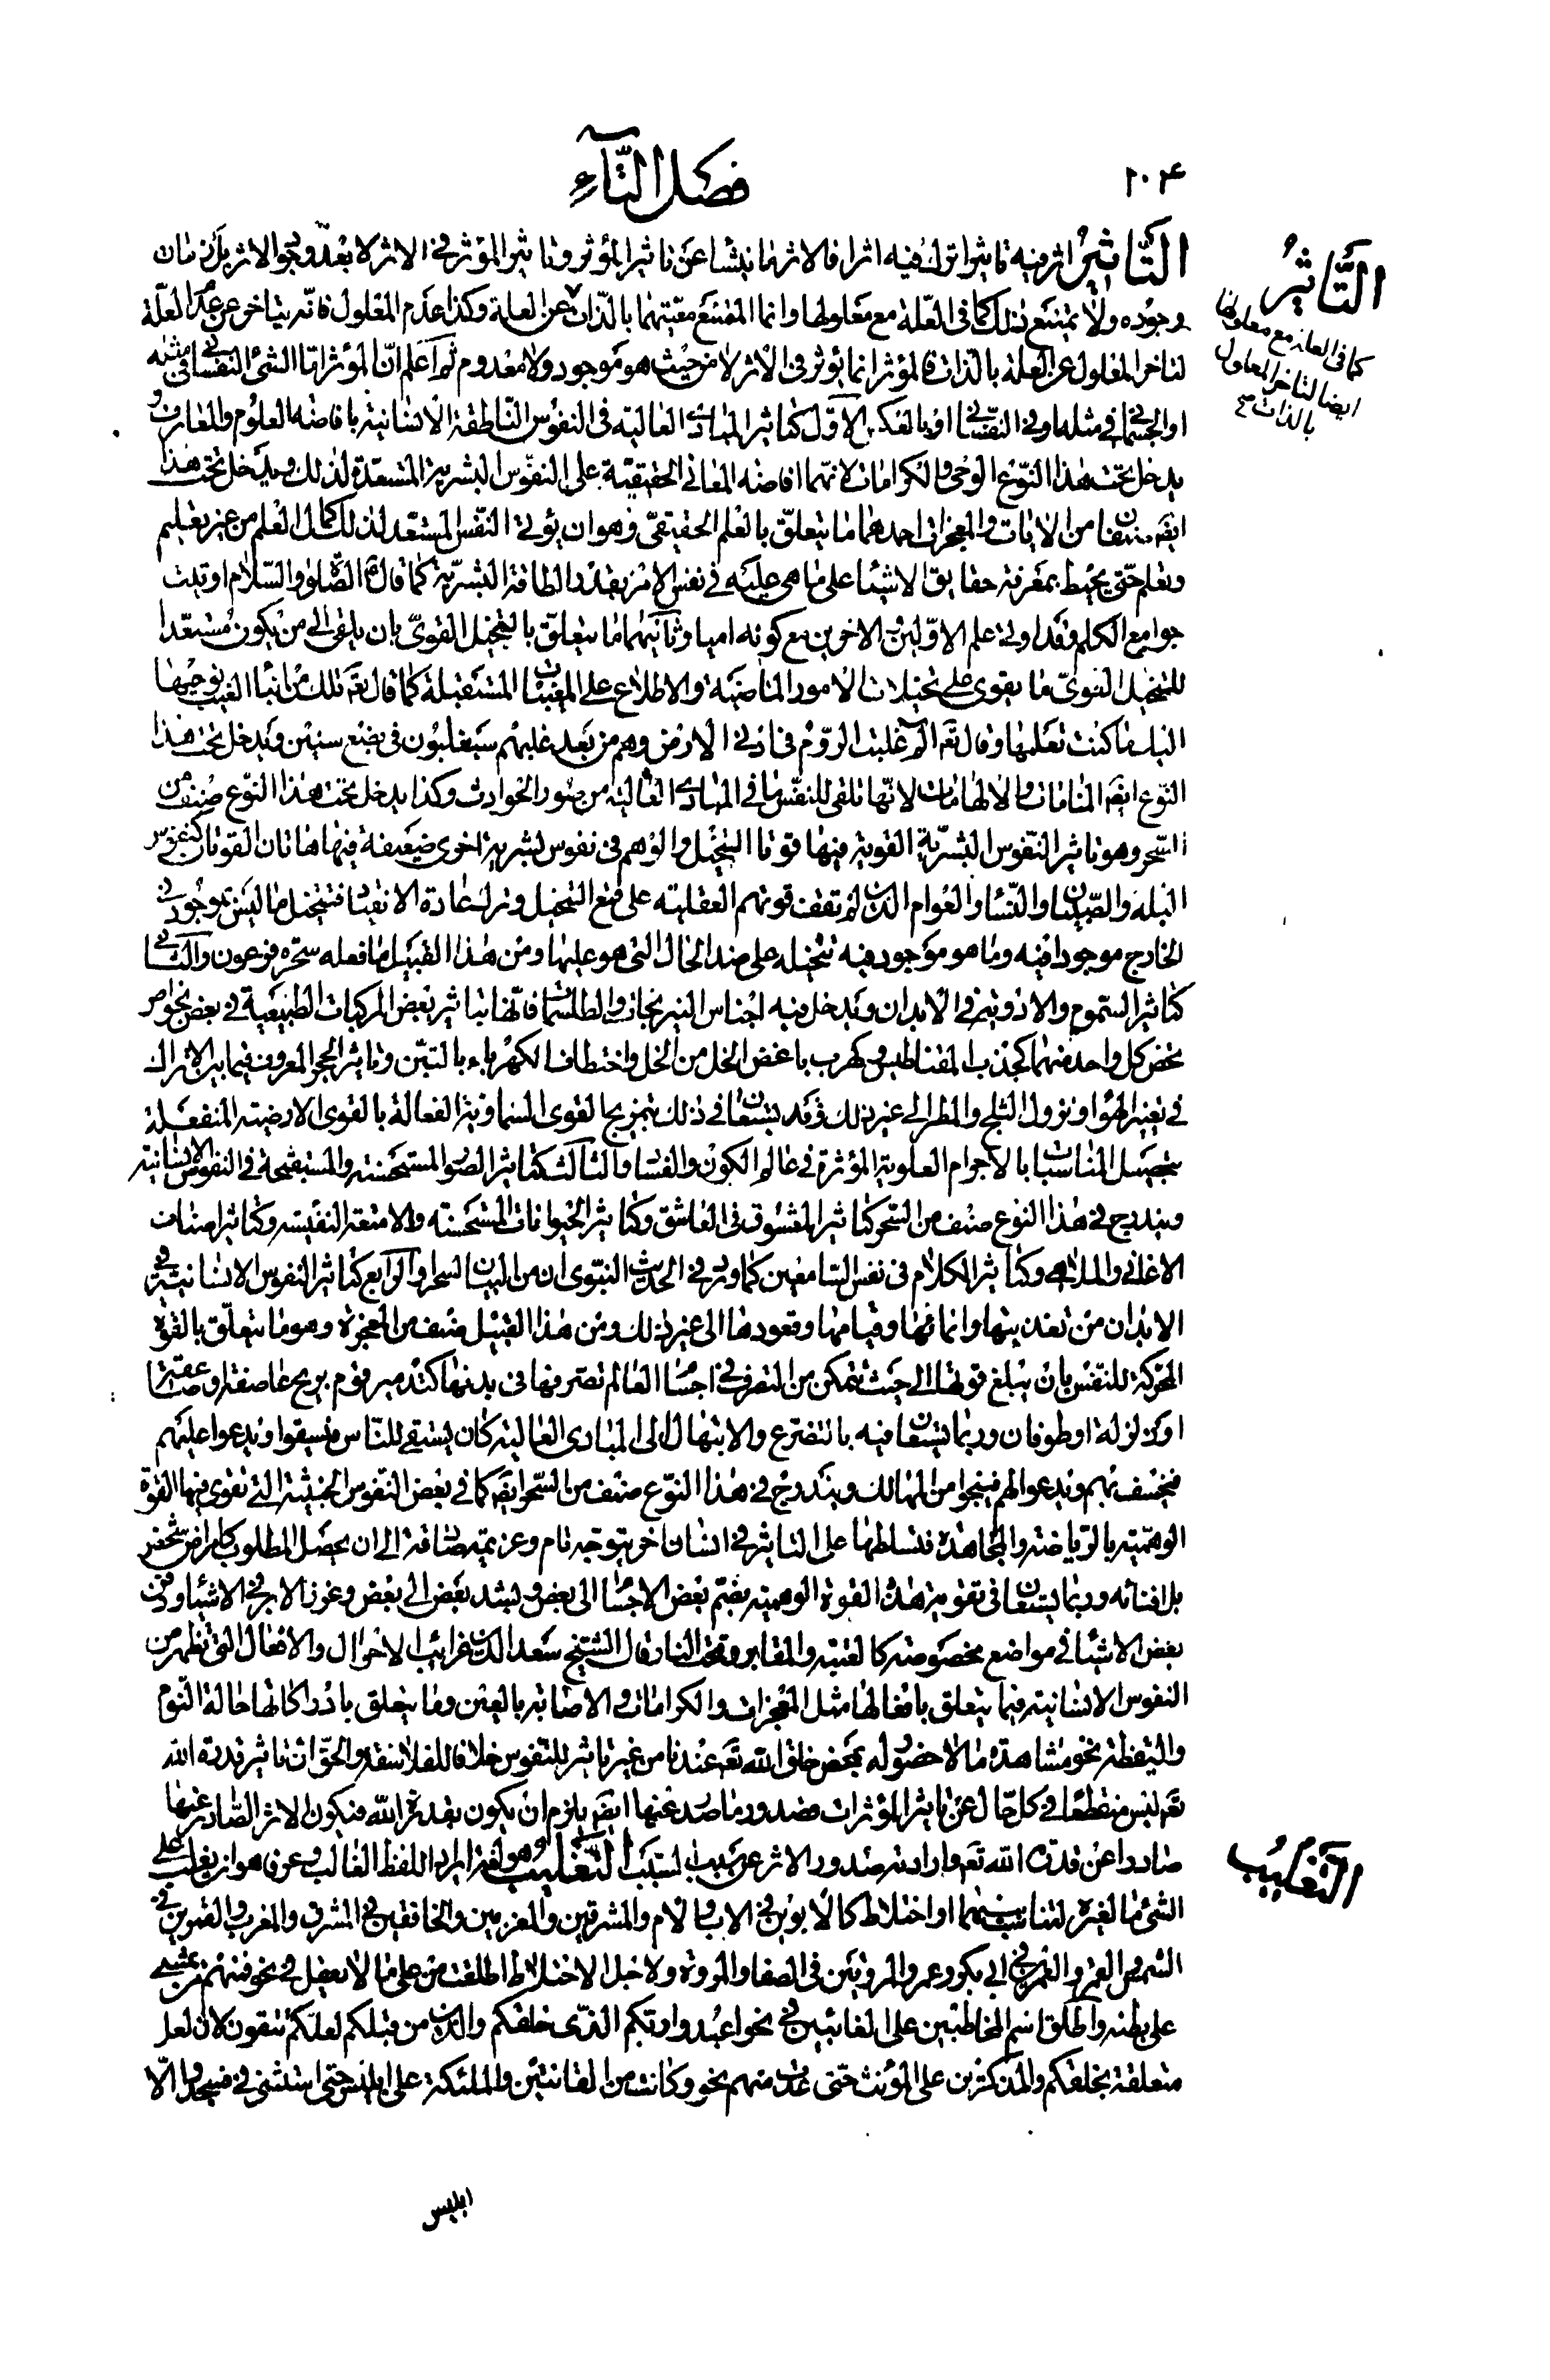 ٢٠٤
فصل التّاء
التَّاثيرُ اثر فيه تاثيرا ترك فيه اثرا فالاثر ما ينشا عن تاثير المؤثر وتاثير المؤثر في الاثر لا بعد وجود الاثر بل زمان
وجوده ولا يمتنع ذلك كما في العلة مع معلولها وانما الممتنع معيتهما بالذات عن العلة وكذا عدم المعلول فانه يتاخر عن عدم العلة
لتاخر المعلول عن العلة بالذات فالمؤثر انما يوثر في الاثر لا من حيث هو موجود ولا معدوم ثم اعلم ان المؤثر اما الشئ النفساني في مثله
او الجسماني في مثله او في النفساني او بالعكس الاول كتاثير المبادى العالية في النفوس الناطقة الانسانية بافاضة العلوم والمعارف و
يدخل تحت هذا النوع الوحى والكرامات لانهما افاضة المعاني الحقيقية على النفوس البشرية المستعدة لذلك ويدخل تحت هذا
ايضا صنفان من الايات والمعجزات احدهما ما يتعلق بالعلم الحقيقى وهو ان يؤتى النفس المستعد لذلك كمال العلم من غير تعليم
وتعلم حتى يحيط بمعرفة حقايق الاشيا على ما هى عليه في نفس الامر بقدر الطاقة البشرية كما قال عليه الصلوة والسلام اوتيت
جوامع الكلم وقد اوتى علم الاولين والاخرين مع كونه اميا وثانيهما ما يتعلق بالتخيل القوى بان يلقى الى من يكون مستعدا
للتخيل القوى ما يقوى على تخيلات الامور الماضية والاطلاع على المغيبات المستقبلة كما قال تعه تلك من انباء الغيب نوحيها
اليك ما كنت تعلمها وقال تعه الم غلبت الروم في ادنى الارض وهم من بعد غلبهم سيغلبون في بضع سنين ويدخل تحت هذا
النوع ايضا المنامات والالهامات لانها تلقى للنفس ما في المبادى العالية من صور الحوادث وكذا يدخل تحت هذا النوع صنف من
السحر وهو تاثير النفوس البشرية القوية فيها قوتا التخيل والوهم في نفوس بشرية اخرى ضعيفة فيها هاتان القوتان كنفوس
البله والصبيان والنساء والعوام الذين لم تقف قوتهم العقلية على قمع التخيل وترك عادة الانقياد فتتخيل ما ليس بموجود في
الخارج موجودا فيه وما هو موجود فيه تتخيله على ضد الحال التى هو عليها ومن هذا القبيل ما فعله سحرة فرعون والثاني
كتاثير السموم والادوية في الابدان ويدخل فيه اجناس النيرنجات والطلسمات فانها بتاثير بعض المركبات الطبيعية في بعض بخواص
تخص كل واحد منهما كجذب المغناطيس وكهرب باغض الخل من الخل واختطاف الكهرباء بالتبن وتاثير الحجر المعروف فيما بين الاتراك
في تغير الهواء ونزول الثلج والمطر الى غير ذلك وقد يستعان في ذلك بتمزيج القوى السماوية الفعالة بالقوى الارضية المنفعلة
بتحصيل المناسبات بالاجرام العلوية المؤثرة في عالم الكون والفساد والثالث كتاثير الصور المستحسنة والمستقبحة في النفوس الانسانية
ويندرج في هذا النوع صنف من السحر كتاثير المعشوق في العاشق وكتاثير الحيوانات المستحسنة والامتعة النفيسة وكتاثير اصناف
الاغاني والملاهى وكتاثير الكلام في نفس السامعين كما ورد في الحديث النبوى ان من البيان لسحرا والرابع كتاثير النفوس الانسانية في
الابدان من تغذيتها وانمائها وقيامها وقعودها الى غير ذلك ومن هذا القبيل صنف من المعجزة وهو ما يتعلق بالقوة
المحركة للنفس بان يبلغ قوتها الى حيث تتمكن من التصرف في اجسام العالم تصرفها في بدنها كتدمير قوم بريح عاصفة او صاعقة
او زلزلة او طوفان وربما يستعان فيه بالتضرع والابتهال الى المبادى العالية كان يستسقى للناس فيسقوا ويدعو عليهم
فيخسف بهم ويدعو لهم فينجوا من المهالك ويندرج في هذا النوع صنف من السحر ايضا كما في بعض النفوس الخبيثة التى تقوى فيها القوة
الوهمية بالرياضة والمجاهدة فتسلطها على التاثير في انسان اخر بتوجه تام وعزيمة صادقة الى ان يحصل المطلوب كامراض شخص
بل افنائه وربما يستعان في تقوية هذه القوة الوهمية بضم بعض الاجسام الى بعض وبشد بعض الى بعض وغرز الابر في الاشياء ودفن
بعض الاشياء في مواضع مخصوصة كالعتبة والمقابر وتحت النار قال الشيخ سعد الدين غرائب الاحوال والافعال التى تظهر من
النفوس الانسانية فيما يتعلق بافعالها مثل المعجزات والكرامات والاصابة بالعين وما يتعلق بادراكاتها حالة النوم
واليقظة نحو مشاهدة ما لا حضور له بمحض خلق الله تعه عندنا من غير تاثير للنفوس خلافا للفلاسفة والحق ان تاثير قدرة الله
تعه ليس منقطعا في كل حال عن تاثير المؤثرات فصدور ما صدر عنها ايضا يلزم ان يكون بقدرة الله فيكون الاثر الصادر عنها
صادرا عن قدرة الله تعه وارادته صدور الاثر عن سبب السبب التغليب هو لغة ايراد اللفظ الغالب وعرفا هو ان يغلب على
الشئ ما لغيره لتناسب بينهما او اختلاط كالابوين في الاب والام والمشرقين والمغربين والخافقين في المشرق والمغرب والقمرين في
الشمس والقمر والعمرين في ابى بكر وعمر والمروتين في الصفا والمروة ولاجل الاختلاط اطلقت من على ما لا يعقل في نحو فمنهم من يمشى
على بطنه واطلق اسم المخاطبين على الغائبين في نحو اعبدوا ربكم الذى خلقكم والذين من قبلكم لعلكم تتقون لان لعل
متعلقة بخلقكم والمذكرين على المؤنث حتى عدت منهم نحو وكانت من القانتين والملئكة على ابليس حتى استثنى في فسجدوا الا
ابليس
التَّاثيرُ
كما في العلة مع معلولها
ايضا لتاخر المعلول
بالذات صح
التَّغليب